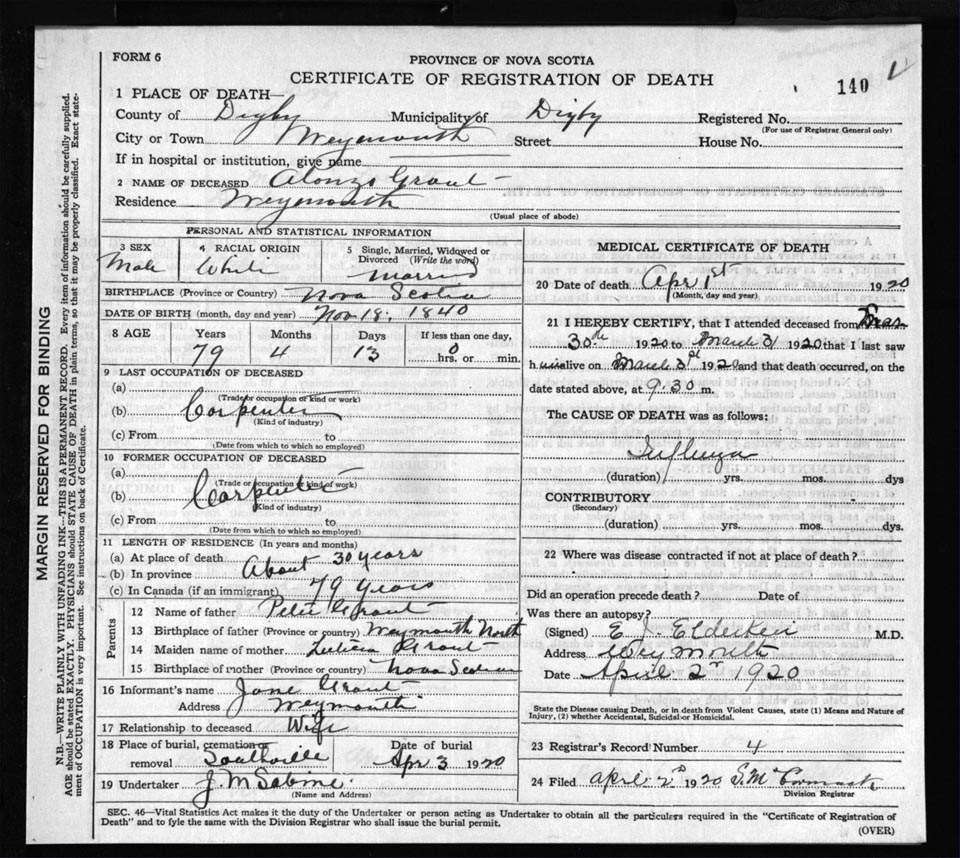 FORM 6
PROVINCE OF NOVA SCOTIA
CERTIFICATE OF REGISTRATION OF DEATH
140
1 PLACE OF DEATH—
County of Digby Municipality of Digby Registered No.
(For use of Registrar General only)
City or Town Weymouth Street House No.
If in hospital or institution, give name
2 NAME OF DECEASED Alonzo Grant
Residence Weymouth
(Usual place of abode)
PERSONAL AND STATISTICAL INFORMATION
3 SEX Male
4 RACIAL ORIGIN White
5 Single, Married, Widowed or Divorced (Write the word) Married
BIRTHPLACE (Province or Country) Nova Scotia
DATE OF BIRTH (month, day and year) Nov 18, 1840
8 AGE Years Months Days If less than one day,
79 4 13 0 hrs. or min.
9 LAST OCCUPATION OF DECEASED
(a)
(Trade or occupation or kind or work)
(b) Carpenter
(Kind of industry)
(c) From to
(Date from which to which so employed)
10 FORMER OCCUPATION OF DECEASED
(a)
(Trade or occupation or kind of work)
(b) Carpenter
(Kind of industry)
(c) From to
(Date from which to which so employed)
11 LENGTH OF RESIDENCE (In years and months)
(a) At place of death About 30 years
(b) In province
(c) In Canada (if an immigrant) 79 years
Parents
12 Name of father Peter Grant
13 Birthplace of father (Province or country) Weymouth North
14 Maiden name of mother Grant
15 Birthplace of mother (Province or country) Nova Scotia
16 Informant's name Jane Grant
Address Weymouth
17 Relationship to deceased Wife
18 Place of burial, cremation or removal Southville
Date of burial Apr 3 1920
19 Undertaker J. M Sabine
(Name and Address)
MEDICAL CERTIFICATE OF DEATH
20 Date of death Apr 1st 1920
(Month, day and year)
21 I HEREBY CERTIFY, that I attended deceased from
30th 1920 to March 31 1920 that I last saw
h im alive on March 31 1920 and that death occurred, on the
date stated above, at 9.30 m.
The CAUSE OF DEATH was as follows:
Influenza
(duration) yrs. mos. dys
CONTRIBUTORY
(Secondary)
(duration) yrs. mos. dys.
22 Where was disease contracted if not at place of death?
Did an operation precede death? Date of
Was there an autopsy?
(Signed) E. J. Elderkin M.D.
Address Weymouth
Date April 2nd 1920
State the Disease causing Death, or in death from Violent Causes, state (1) Means and Nature of
Injury, (2) whether Accidental, Suicidal or Homicidal.
23 Registrar's Record Number 4
24 Filed April 2nd 1920 S. McCormack
Division Registrar
SEC. 46—Vital Statistics Act makes it the duty of the Undertaker or person acting as Undertaker to obtain all the particulars required in the "Certificate of Registration of
Death" and to fyle the same with the Division Registrar who shall issue the burial permit.
(OVER)
MARGIN RESERVED FOR BINDING
N.B.—WRITE PLAINLY WITH UNFADING INK—THIS IS A PERMANENT RECORD. Every item of information should be carefully supplied.
AGE should be stated EXACTLY. PHYSICIANS should STATE CAUSE OF DEATH in plain terms, so that it may be properly classified. Exact state-
ment of OCCUPATION is very important. See instructions on back of Certificate.